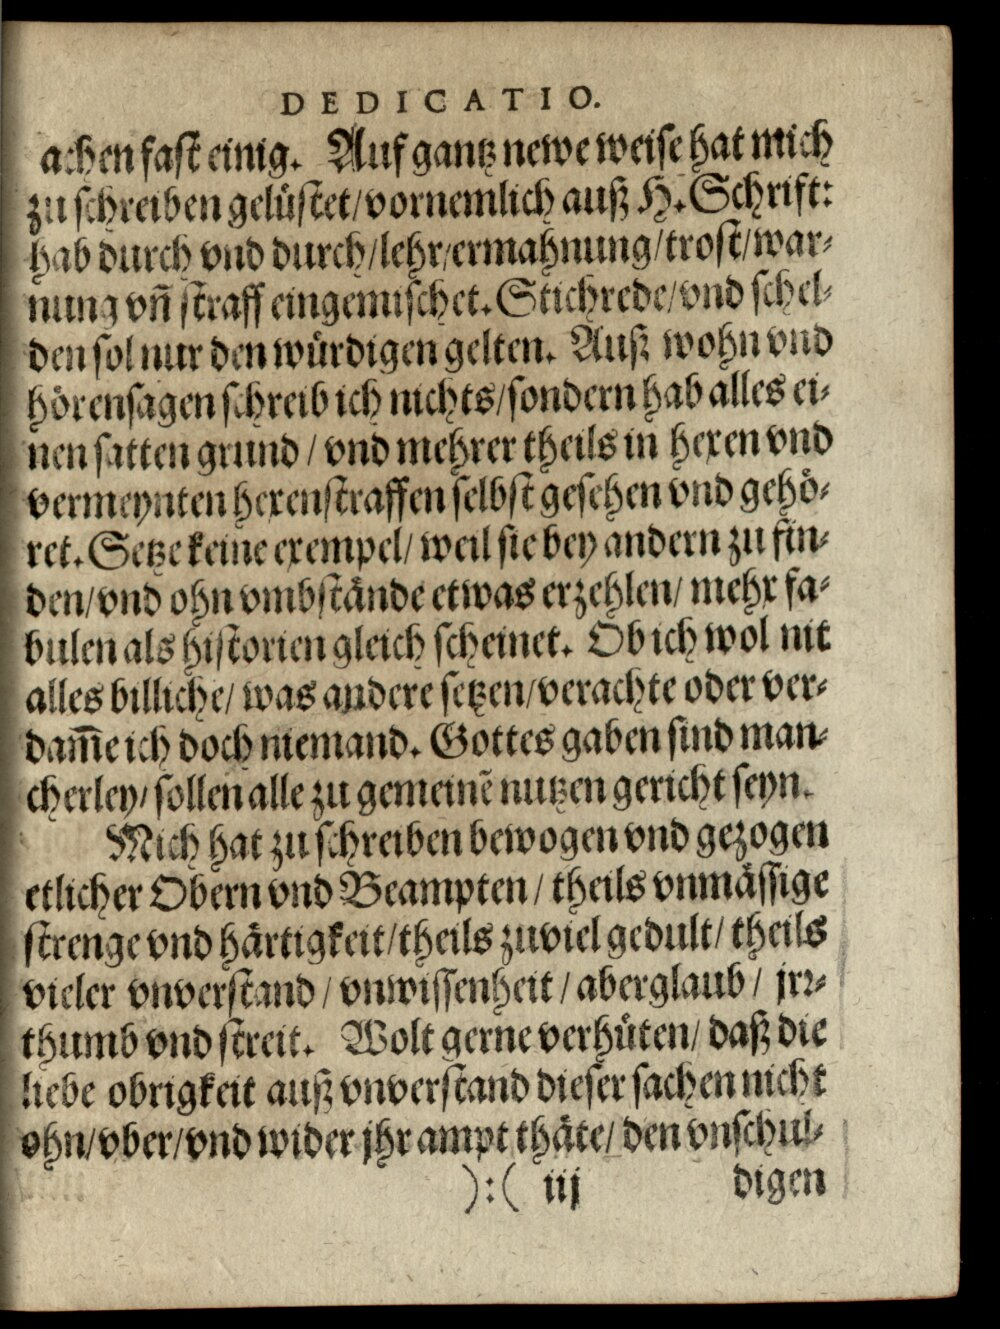 DEDICATIO.
achen fast einig. Auf gantz newe weise hat mich
zu schreiben gelüstet/vornemlich auß H. Schrift:
hab durch vnd durch/lehr/ermahnung/trost/war-
nung vñ straff eingemischet. Stichrede/vnd schel-
den sol nur den würdigen gelten. Auß wohn vnd
hörensagen schreib ich nichts/sondern hab alles ei-
nen satten grund / vnd mehrer theils in hexen vnd
vermeynten hexenstraffen selbst gesehen vnd gehö-
ret. Setze keine exempel/ weil sie bey andern zu fin-
den/vnd ohn vmbstände etwas erzehlen/ mehr fa-
bulen als historien gleich scheinet. Ob ich wol nit
alles billiche/ was andere setzen/verachte oder ver-
dam̃e ich doch niemand. Gottes gaben sind man-
cherley/sollen alle zu gemeinẽ nutzen gericht seyn.
Mich hat zu schreiben bewogen vnd gezogen
etlicher Obern vnd Beampten / theils vnmässige
strenge vnd härtigkeit/theils zuviel gedult/ theils
vieler vnverstand / vnwissenheit / aberglaub / jrr-
thumb vnd streit. Wolt gerne verhüten/ daß die
liebe obrigkeit auß vnverstand dieser sachen nicht
ohn/vber/vnd wider jhr ampt thäte/ den vnschul-
):( iij digen